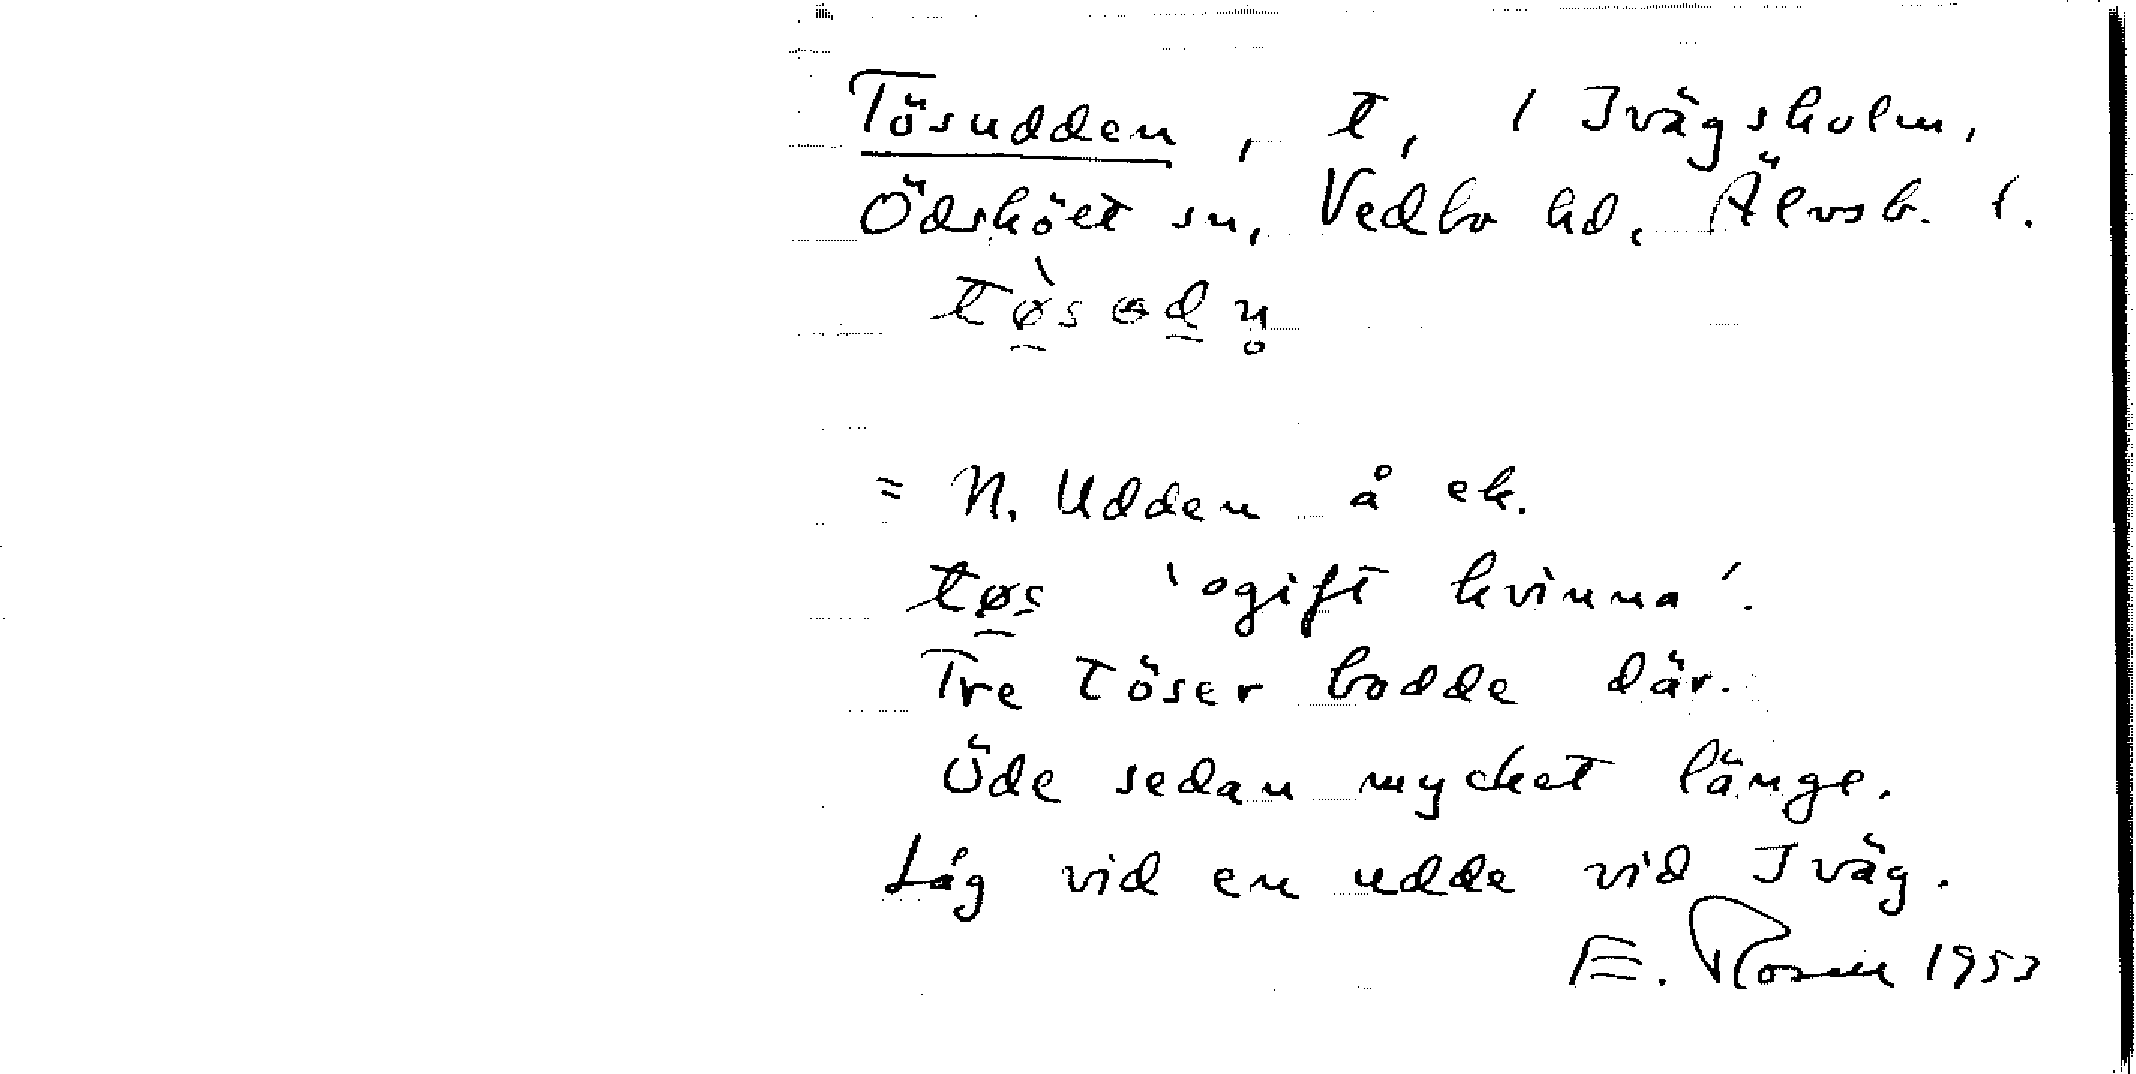 Tösudden, t, 1 Ivägsholm,
Ödsköet sn, Vedbo hd, Älvsb. l.
tø̀sɵdn̥
= N. Udden å ek.
tøs 'ogift kvinna'.
Tre töser bodde där.
Öde sedan mycket länge.
Låg vid en udde vid Iväg.
E. Rosell 1953